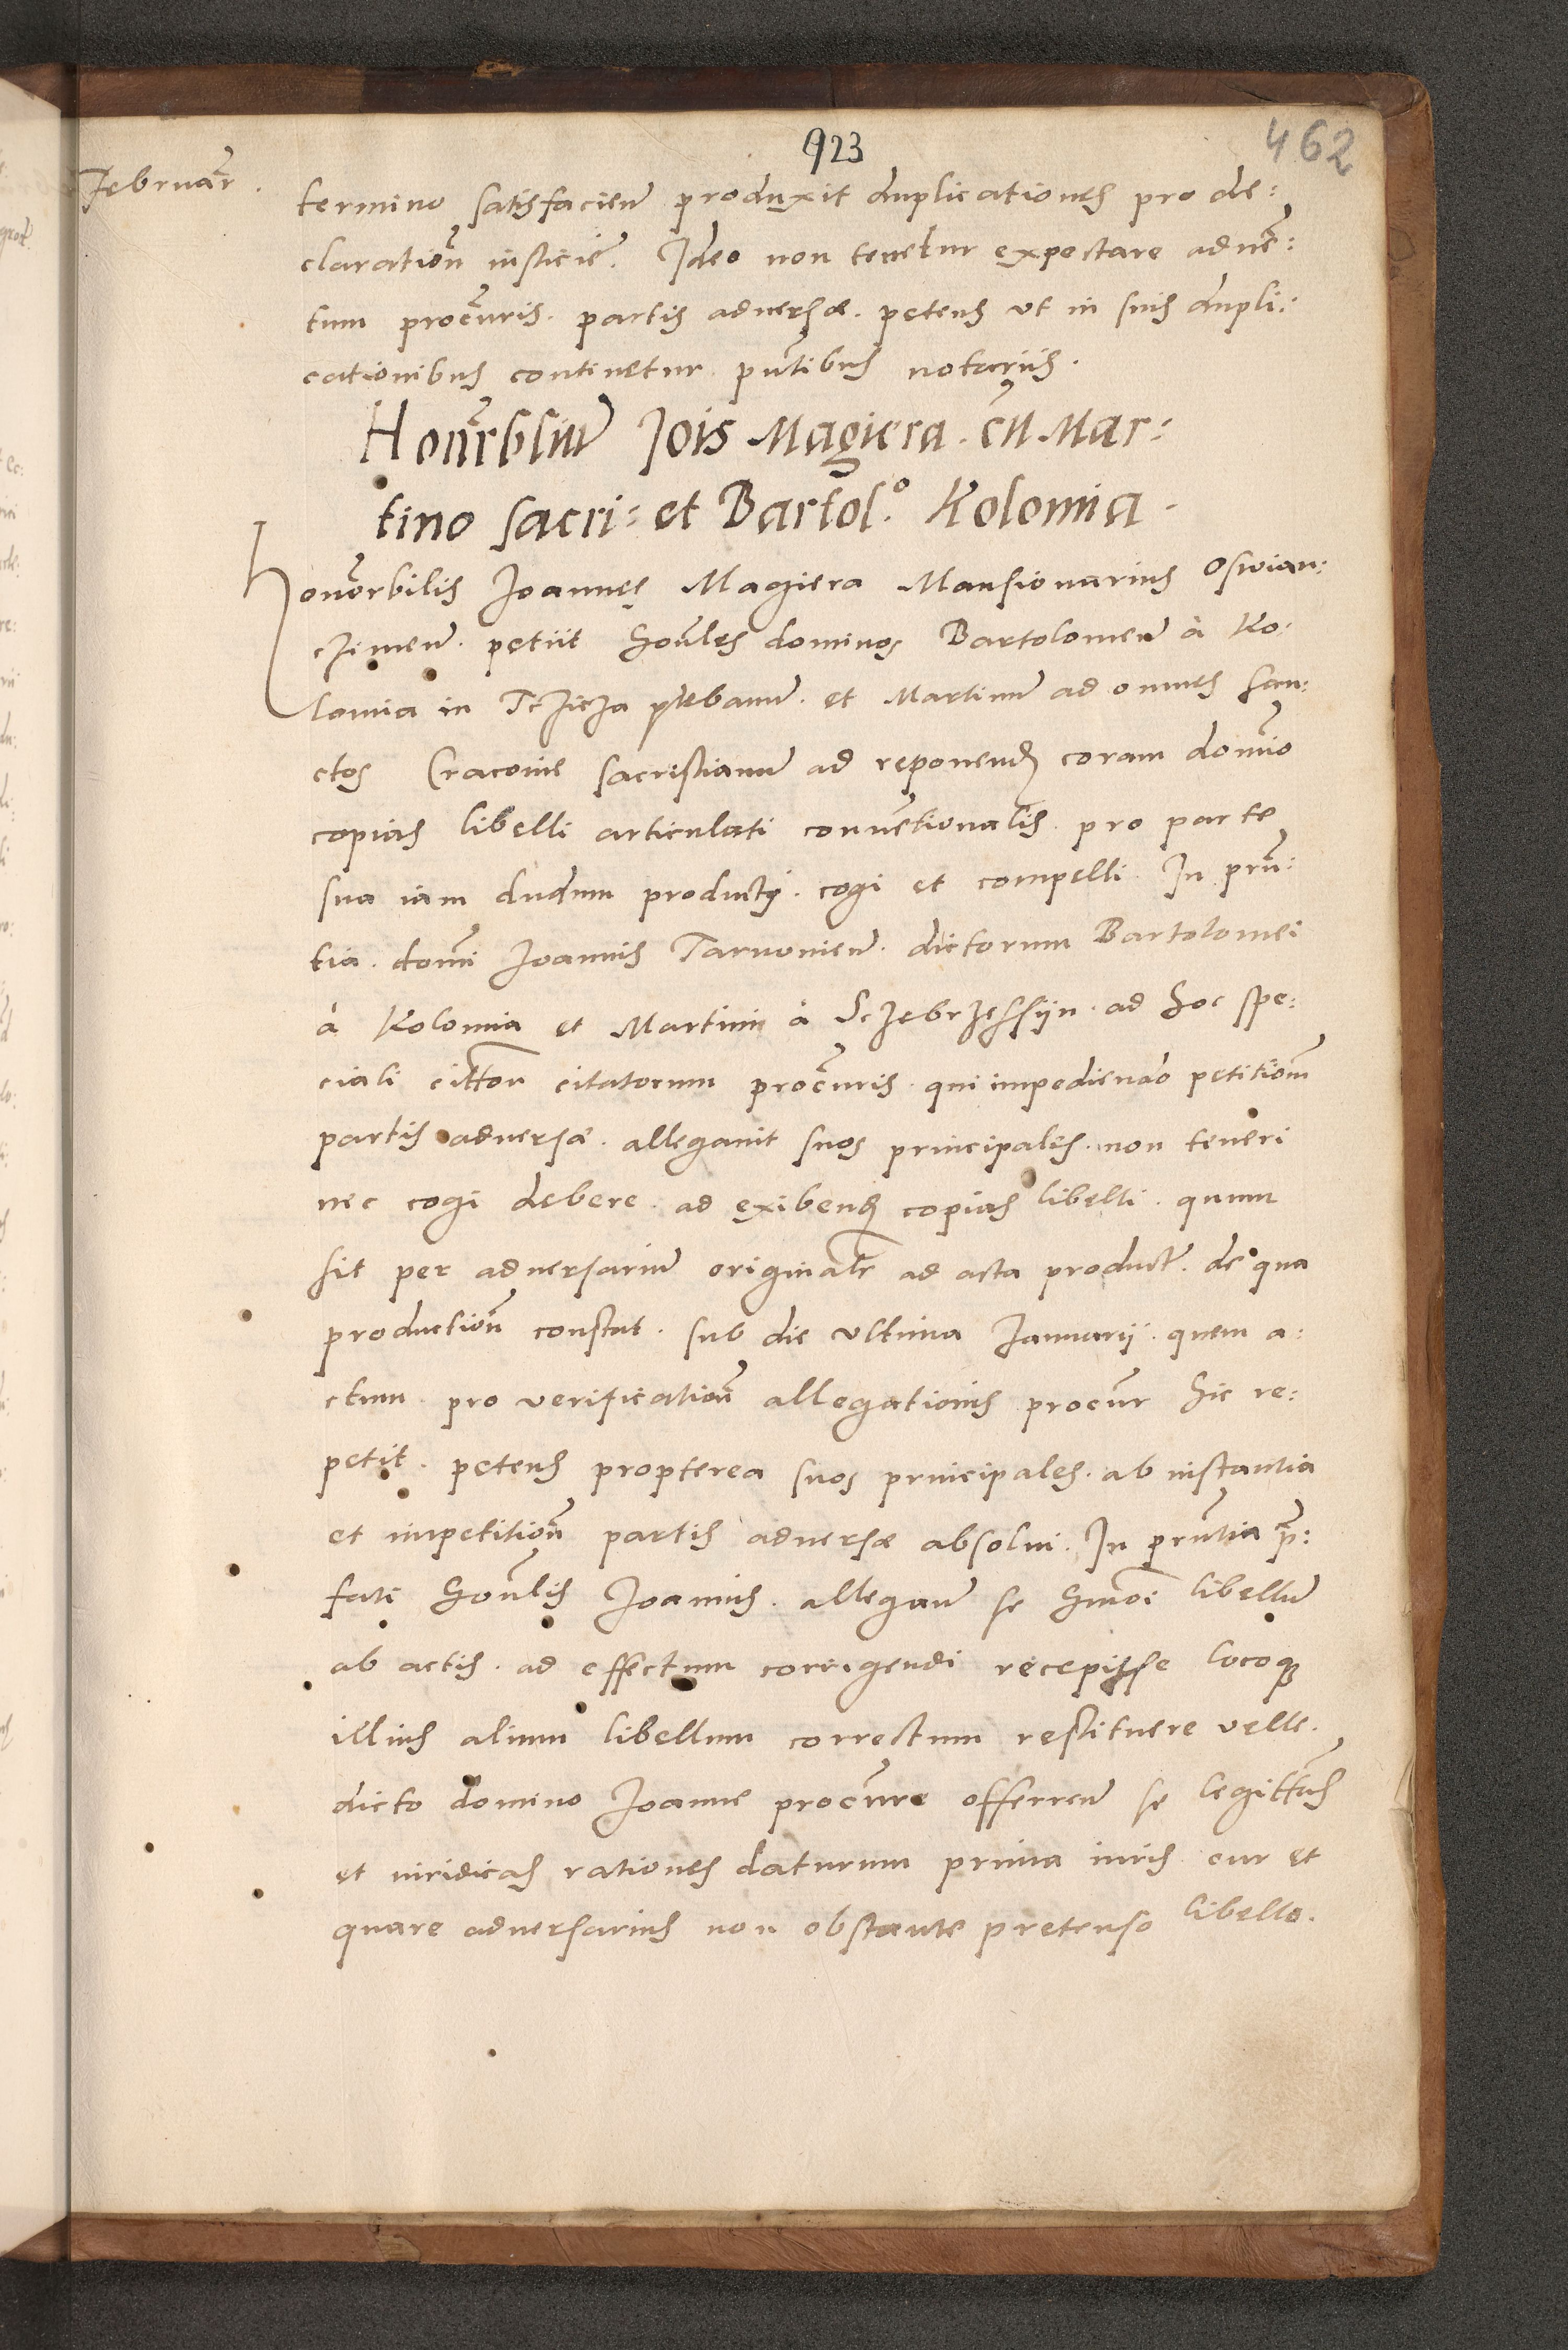 923
462
Februar̃.
termino satisfacieñ produxit duplicationes pro de:
claratioñ iusticiẽ. Ideo non tenetur expectare aduẽ:
tum procũris. partis aduersæ. petens vt in suis dupli:
cationibus continetur pñtibus notarijs.
Honor̃bliũ Jois Magiera. cũ Mar:
tino sacri: et Bartol.º Kolomia.
Honorbilis Joannes Magiera Mansionarius Oswian:
czimeñ. petiit honl̃es dominos Bartolomeũ à Ko:
lomia in Tczicza plebanũ. et Martinũ ad omnes san:
ctos Cracouie sacristianũ ad reponend̃ coram domĩo
copias libelli articulati conuẽtionalis. pro parte
sua iam dudum producti. cogi et compelli. In prñ:
tia. domĩ Joannis Tarnonieñ. dictorum Bartolomei
à Kolomia et Martini à Sczebrzessyn. ad hoc spe:
ciali citt̃on citatorum procũris. qui impediendo petitiom̃
partis aduersæ. allegauit suos principales. non teneri
nec cogi debere. ad exibend̃ copias libelli. quum
sit per aduersariũ originalr̃ ad acta product̃. de qua
productioñ constat. sub die vltima Januarij. quem a:
ctum. pro verificatioñ allegationis procur̃ hic re:
petit. petens propterea suos principales. ab instantia
et impetitioñ partis aduersæ absolui. In prñtia p̃:
fati honl̃is Joannis. allegañ se hmõi libellũ
ab actis. ad effectum corrigendi recepisse locoq̃
illius alium libellum correctum restituere velle.
dicto domino Joanne procũre offerreñ se legitt̃as
et iuridicas rationes daturum prima iuris cur et
quare aduersarius non obstante pretenso libello.